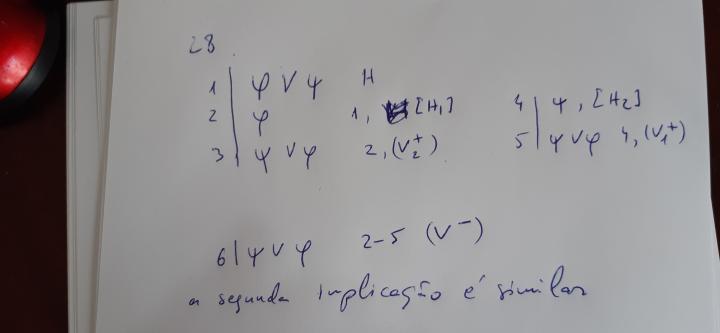 28
1 | φ ∨ ψ H
2 | φ 1, [H₁]
3 | ψ ∨ φ 2, (∨₂⁺)
4 | ψ, [H₂]
5 | ψ ∨ φ 4, (∨₁⁺)
6 | ψ ∨ φ 2-5 (∨⁻)
a segunda implicação é similar